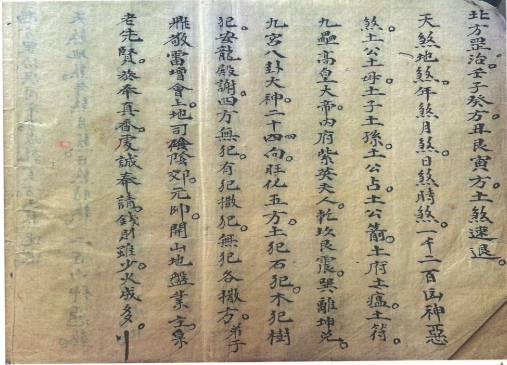 北方罡治壬子癸方丑艮寅方土煞速退
天煞地煞年煞月煞日煞時煞一千二百凶神惡
煞土公土母土子土孫土公占土公箭土府土瘟土符
九壘高皇大帝內府紫英夫人乾坎艮震巽離坤兌
九宮八卦大神二十四向旺化五方土犯石犯木犯樹
犯安龍殿謝四方無犯有犯撒犯無犯各撒方弟子
鼎敬雷壇會上地司陰郊元帥開山地盤業主眾
老先賢焚奉真香虔誠奉請錢財雖少火成多